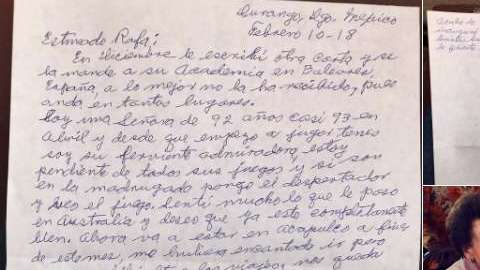 Durango, Dgo. México
Febrero 10-18
Estimado Rafa:
En diciembre le escribí otra carta y se
la mande a su Academia en Baleares,
España, a lo mejor no la ha recibido, pues
anda en tantos lugares.
Soy una Señora de 92 años casi 93 en
Abril y desde que empezo a jugar tenes
soy su ferviente admiradora, estoy
pendiente de todos sus juegos y si son
en la madrugada pongo el despertador
y veo el juego. Senti mucho lo que le paso
en Australia y deseo que ya este completamente
bien. Ahora va a estar en Acapulco a fines
de este mes, me hubiera encantado ir pero
los viajes, nos queda